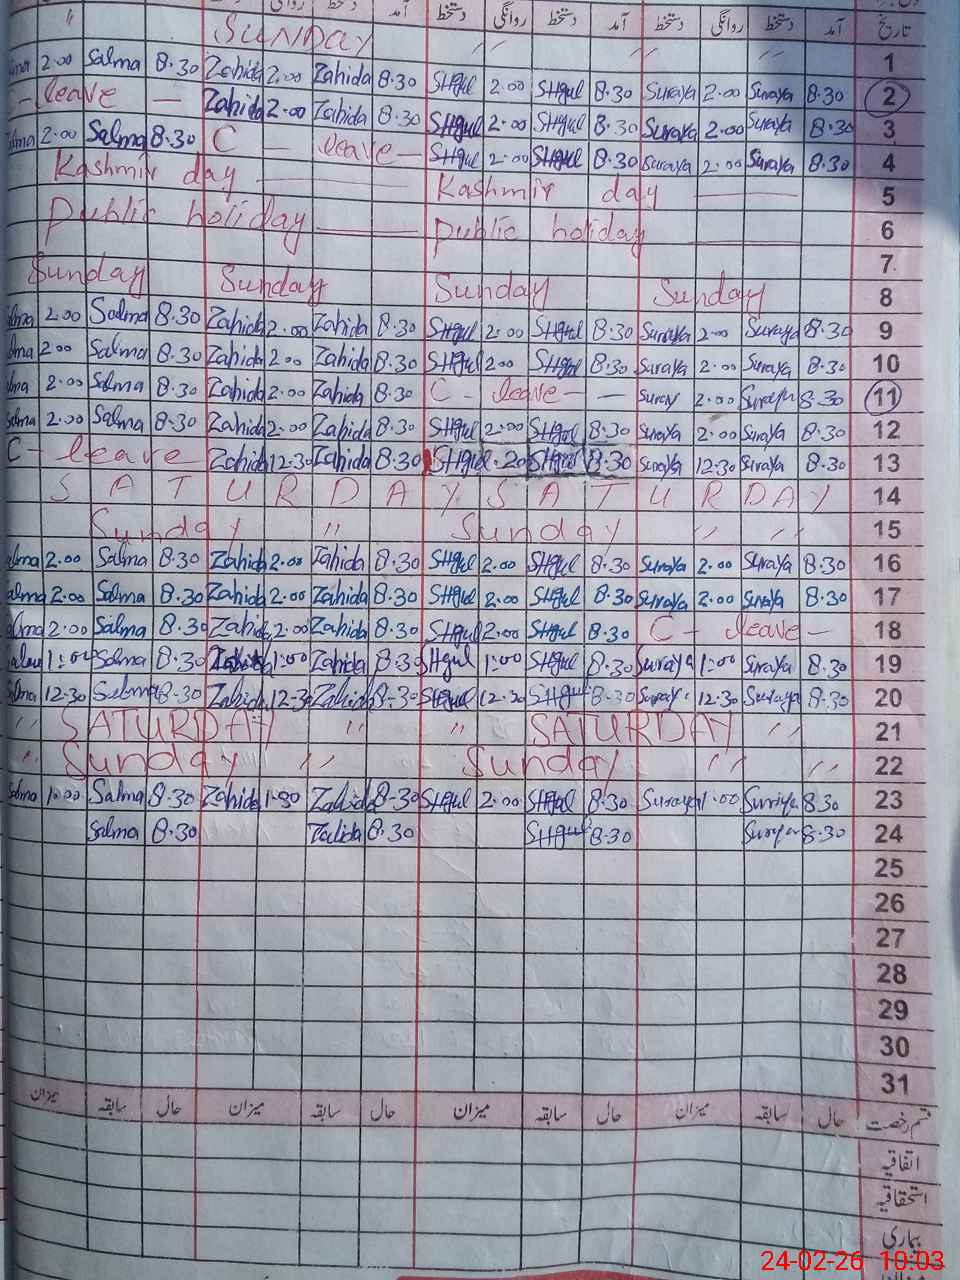 تاریخ آمد دستخط روانگی دستخط آمد دستخط روانگی دستخط آمد دستخط
1 〃 〃 〃 SUNDAY 〃
2 8.30 Suraya 2.00 Suraya 8.30 SHgul 2.00 SHgul 8.30 Zahida 2.00 Zahida 8.30 Salma 2.00
3 8.30 Suraya 2.00 Suraya 8.30 SHgul 2.00 SHgul 8.30 Zahida 2.00 Zahida — leave —
4 8.30 Suraya 2.00 Suraya 8.30 SHgul 2.00 SHgul C - leave — 8.30 Salma 2.00
5 Kashmir day Kashmir day
6 public holiday public holiday
7
8 Sunday Sunday Sunday Sunday
9 8.30 Suraya 2.00 Suraya 8.30 SHgul 2.00 SHgul 8.30 Zahida 2.00 Zahida 8.30 Salma 2.00
10 8.30 Suraya 2.00 Suraya 8.30 SHgul 2.00 SHgul 8.30 Zahida 2.00 Zahida 8.30 Salma 2.00
11 8.30 Suraya 2.00 Suray C - leave - — 8.30 Zahida 2.00 Zahida 8.30 Salma 2.00
12 8.30 Suraya 2.00 Suraya 8.30 SHgul 2.00 SHgul 8.30 Zahida 2.00 Zahida 8.30 Salma 2.00 Salma
13 8.30 Suraya 12.30 Suraya 8.30 SHgul SHgul 8.30 Zahida 12.30 Zahida C - leave
14 SATURDAY SATURDAY
15 〃 〃 Sunday 〃 Sunday
16 8.30 Suraya 2.00 Suraya 8.30 SHgul 2.00 SHgul 8.30 Zahida 2.00 Zahida 8.30 Salma 2.00 Salma
17 8.30 Suraya 2.00 Suraya 8.30 SHgul 2.00 SHgul 8.30 Zahida 2.00 Zahida 8.30 Salma 2.00 Salma
18 C - leave - 8.30 SHgul 2.00 SHgul 8.30 Zahida 2.00 Zahida 8.30 Salma 2.00
19 8.30 Suraya 1:00 Suraya 8.30 SHgul 1:00 SHgul 8.30 Zahida 1:00 Zahida 8.30 Salma 1:00
20 8.30 Suraya 12.30 Suray 8.30 SHgul 12.30 SHgul 8.30 Zahida 12.30 Zahida 8.30 Salma 12.30 Salma
21 〃 SATURDAY 〃 〃 SATURDAY 〃
22 〃 〃 Sunday 〃 Sunday 〃
23 8.30 Suriya 1.00 Suraya 8.30 SHgul 2.00 SHgul 8.30 Zahida 1.30 Zahida 8.30 Salma 1.00 Salma
24 8.30 Suraya 8.30 SHgul 8.30 Zahida 8.30 Salma
25
26
27
28
29
30
31
قسم رخصت حال سابقہ میزان حال سابقہ میزان حال سابقہ میزان حال سابقہ میزان
اتفاقیہ
استحقاقیہ
بیماری
24-02-26 10:03